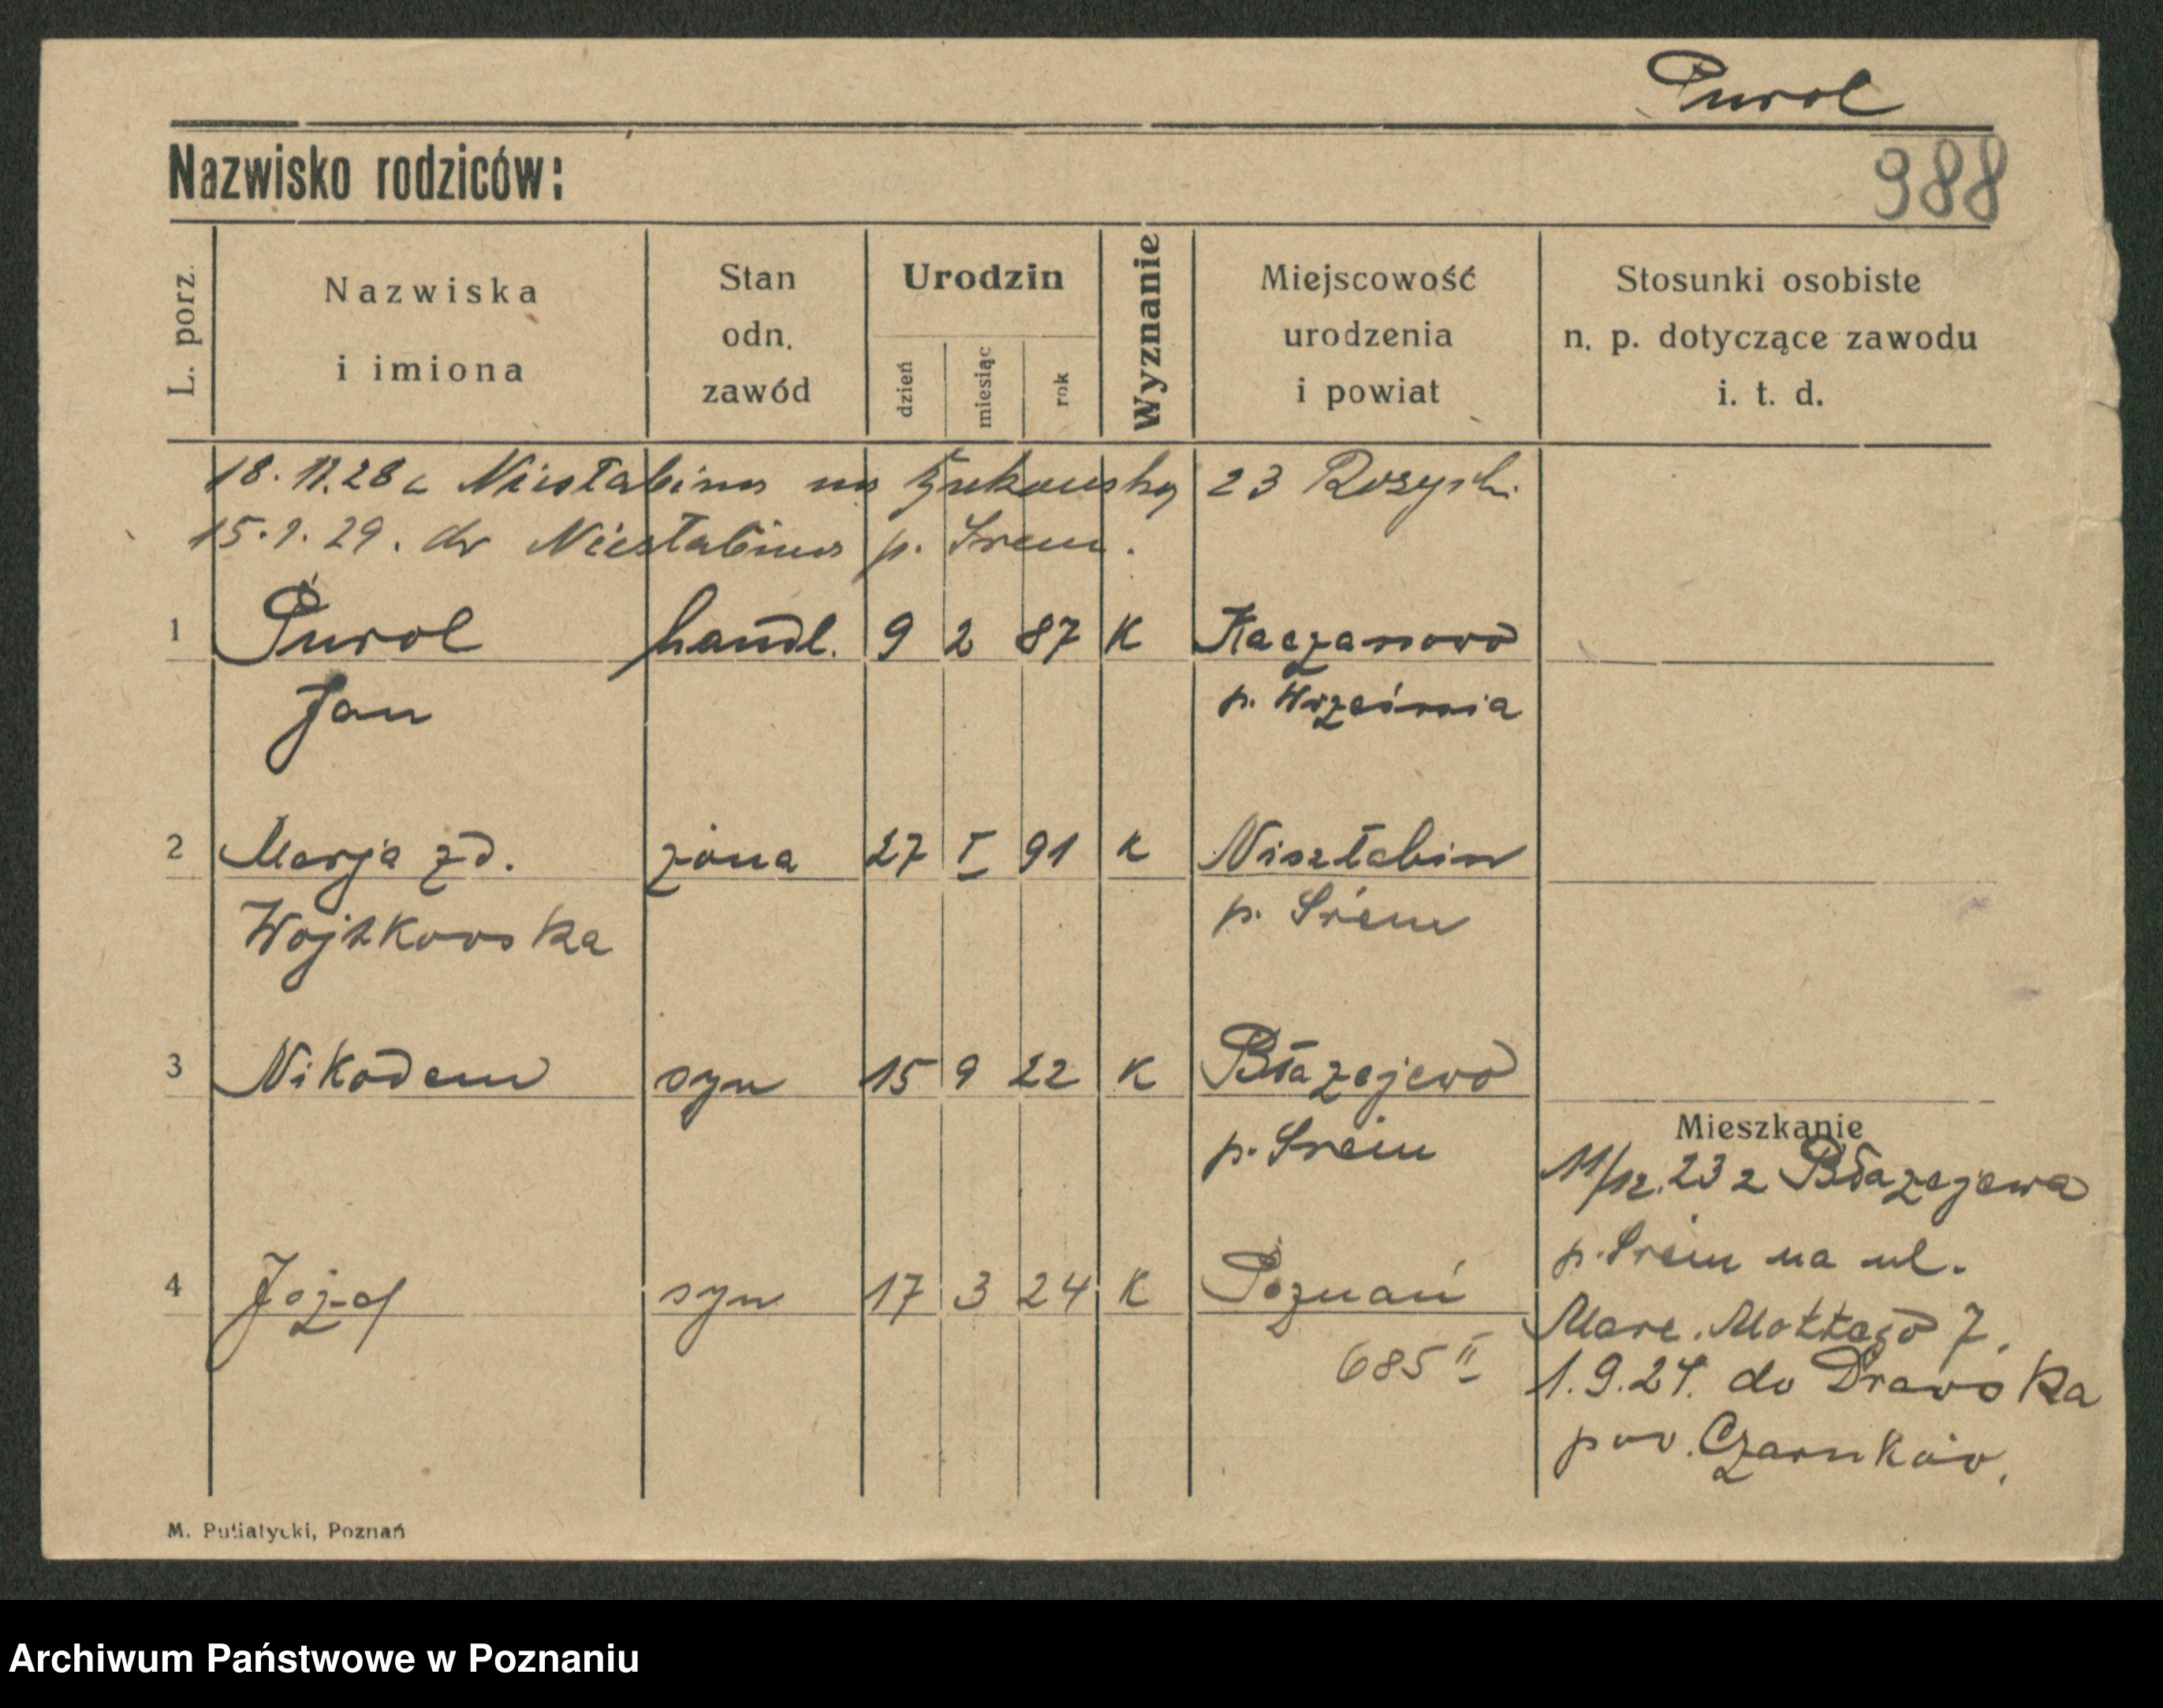 Purol
Nazwisko rodziców:
988
L. porz.
Nazwiska
i imiona
Stan
odn.
zawód
Urodzin
dzień
miesiąc
rok
Wyznanie
Miejscowość
urodzenia
i powiat
Stosunki osobiste
n. p. dotyczące zawodu
i. t. d.
18. 11. 28 Niesłabina na Żukowską 23
15. 1. 29. do Niesłabina p. Śrem.
1 Purol handl. 9 2 87 K Kaczanowo
Jan p. Września
2 Marja zd. żona 27 I 91 K Niszłabin
Wojtkowska p. Śrem
3 Nikodem syn 15 9 22 K Błażejewo
p. Śrem
Mieszkanie
11/12. 23 z Błażejewa
p. Śrem na ul.
4 Józef syn 17 3 24 K Poznań
Marc. Mottego 7.
685 II
1. 9. 24. do Drawska
pow. Czarnków.
M. Putiatycki, Poznań
Archiwum Państwowe w Poznaniu